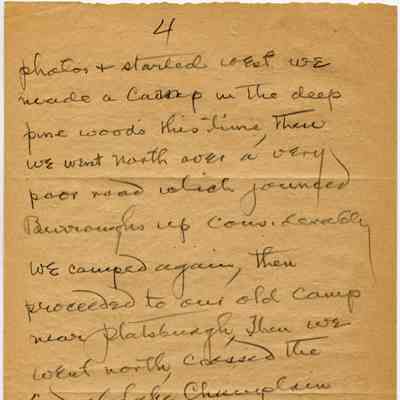 4
photos + started west. we
made a Camp in the deep
pine woods this time, then
we went north over a very
poor road which jounced
Burroughs up considerably
we camped again, then
proceeded to our old camp
near Platsburgh, Then we
went north, crossed the
Lake Champlain